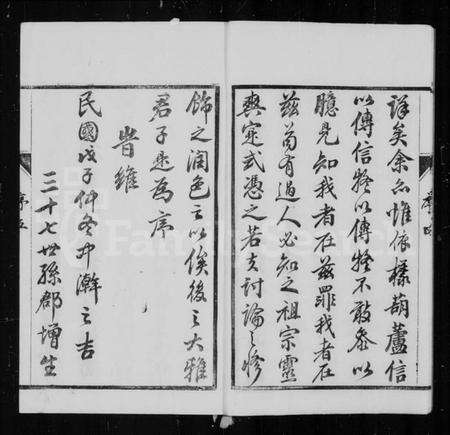 詳矣余亦惟依樣葫蘆信
以傳信疑以傳疑不敢参以
臆見知我者在兹罪我者在
兹苟有過人必知之祖宗靈
爽寔式憑之若夫討論之修
序四
飾之潤色之以俟後之大雅
君子是為序
昔維
民國戊子仲冬中澣之吉
三十七世孫郡增生
序五
FamilySearch